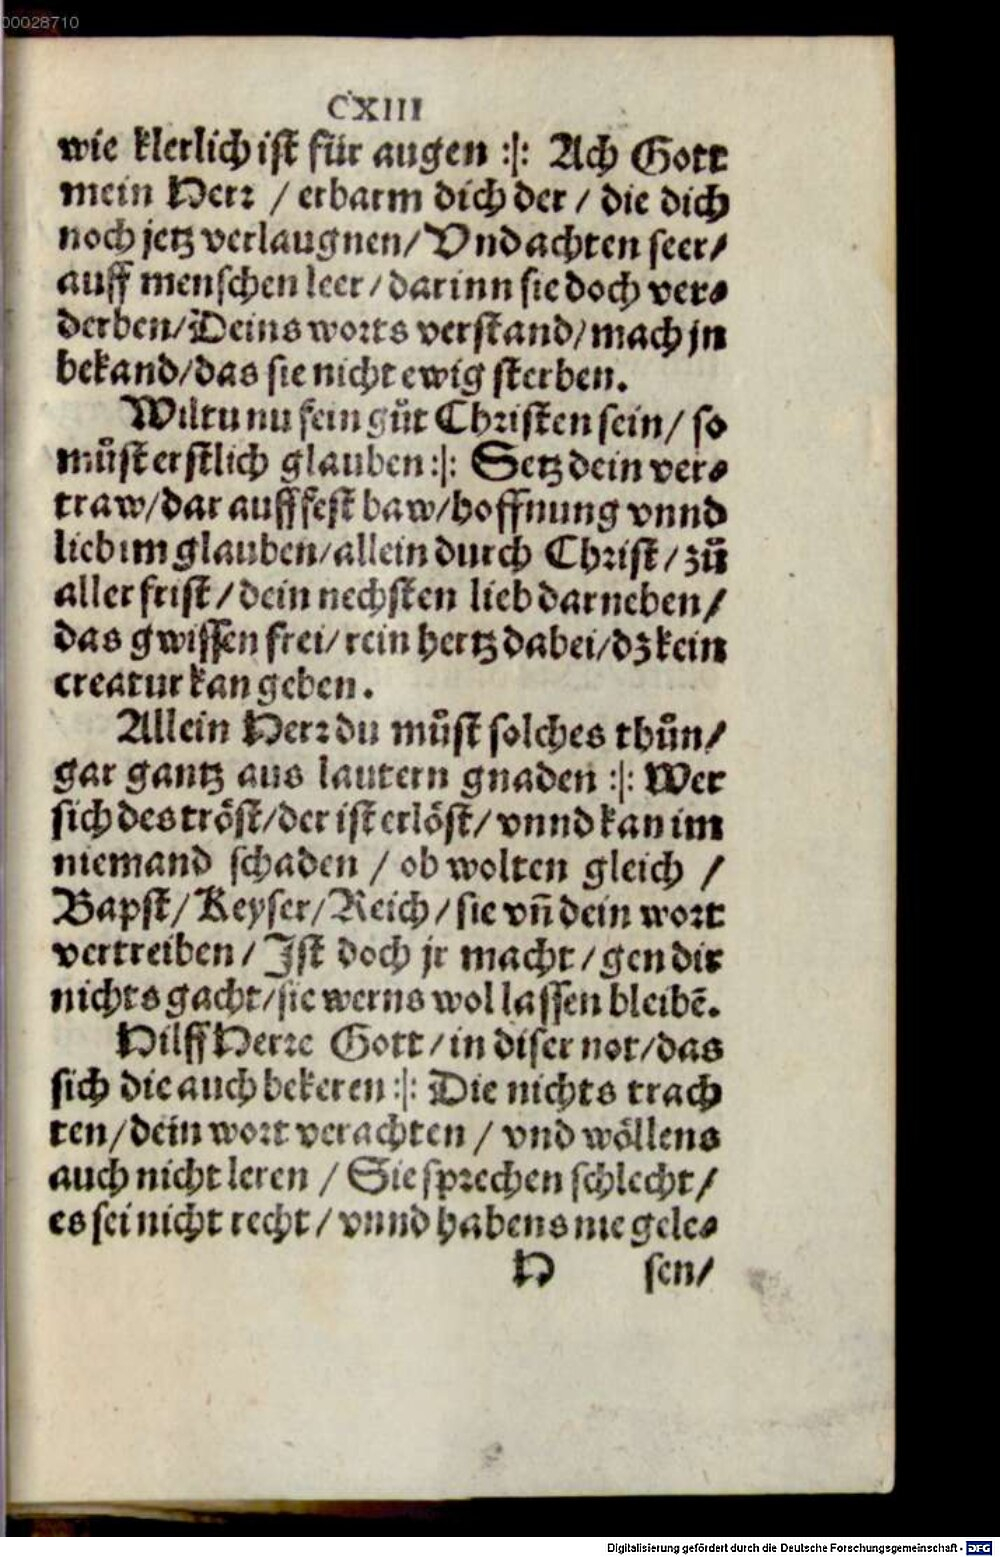 00028710
CXIII
wie klerlich ist für augen :|: Ach Gott
mein Herr / erbarm dich der / die dich
noch jetz verlaugnen/ Vnd achten seer/
auff menschen leer / darinn sie doch ver⸗
derben/ Deins worts verstand/ mach jn
bekand/das sie nicht ewig sterben.
Wiltu nu fein gůt Christen sein/ so
můst erstlich glauben :|: Setz dein ver⸗
traw/dar auff fest baw/hoffnung vnnd
lieb im glauben/allein durch Christ / zů
aller frist / dein nechsten lieb darneben/
das gwissen frei/ rein hertz dabei/dz kein
creatur kan geben.
Allein Herr du můst solches thůn/
gar gantz aus lautern gnaden :|: Wer
sich des tröst/der ist erlöst/ vnnd kan im
niemand schaden / ob wolten gleich /
Bapst/ Keyser/ Reich/ sie vñ dein wort
vertreiben / Ist doch jr macht / gen dir
nichts gacht/sie werns wol lassen bleibē.
Hilff Herre Gott/ in diser not/das
sich die auch bekeren :|: Die nichts trach
ten/dein wort verachten / vnd wöllens
auch nicht leren / Sie sprechen schlecht/
es sei nicht recht/ vnnd habens nie gele⸗
H sen/
Digitalisierung gefördert durch die Deutsche Forschungsgemeinschaft - DFG